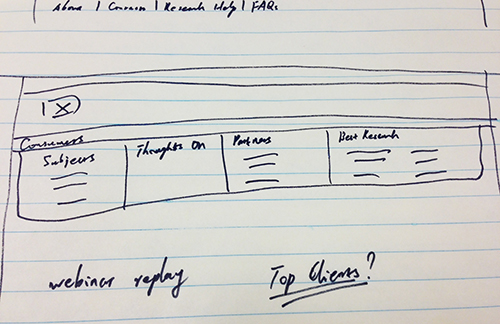 About | Courses | Research Help | FAQs
Consumers
Subjects Thoughts On Partners Best Research
webinar replay Top Clients?